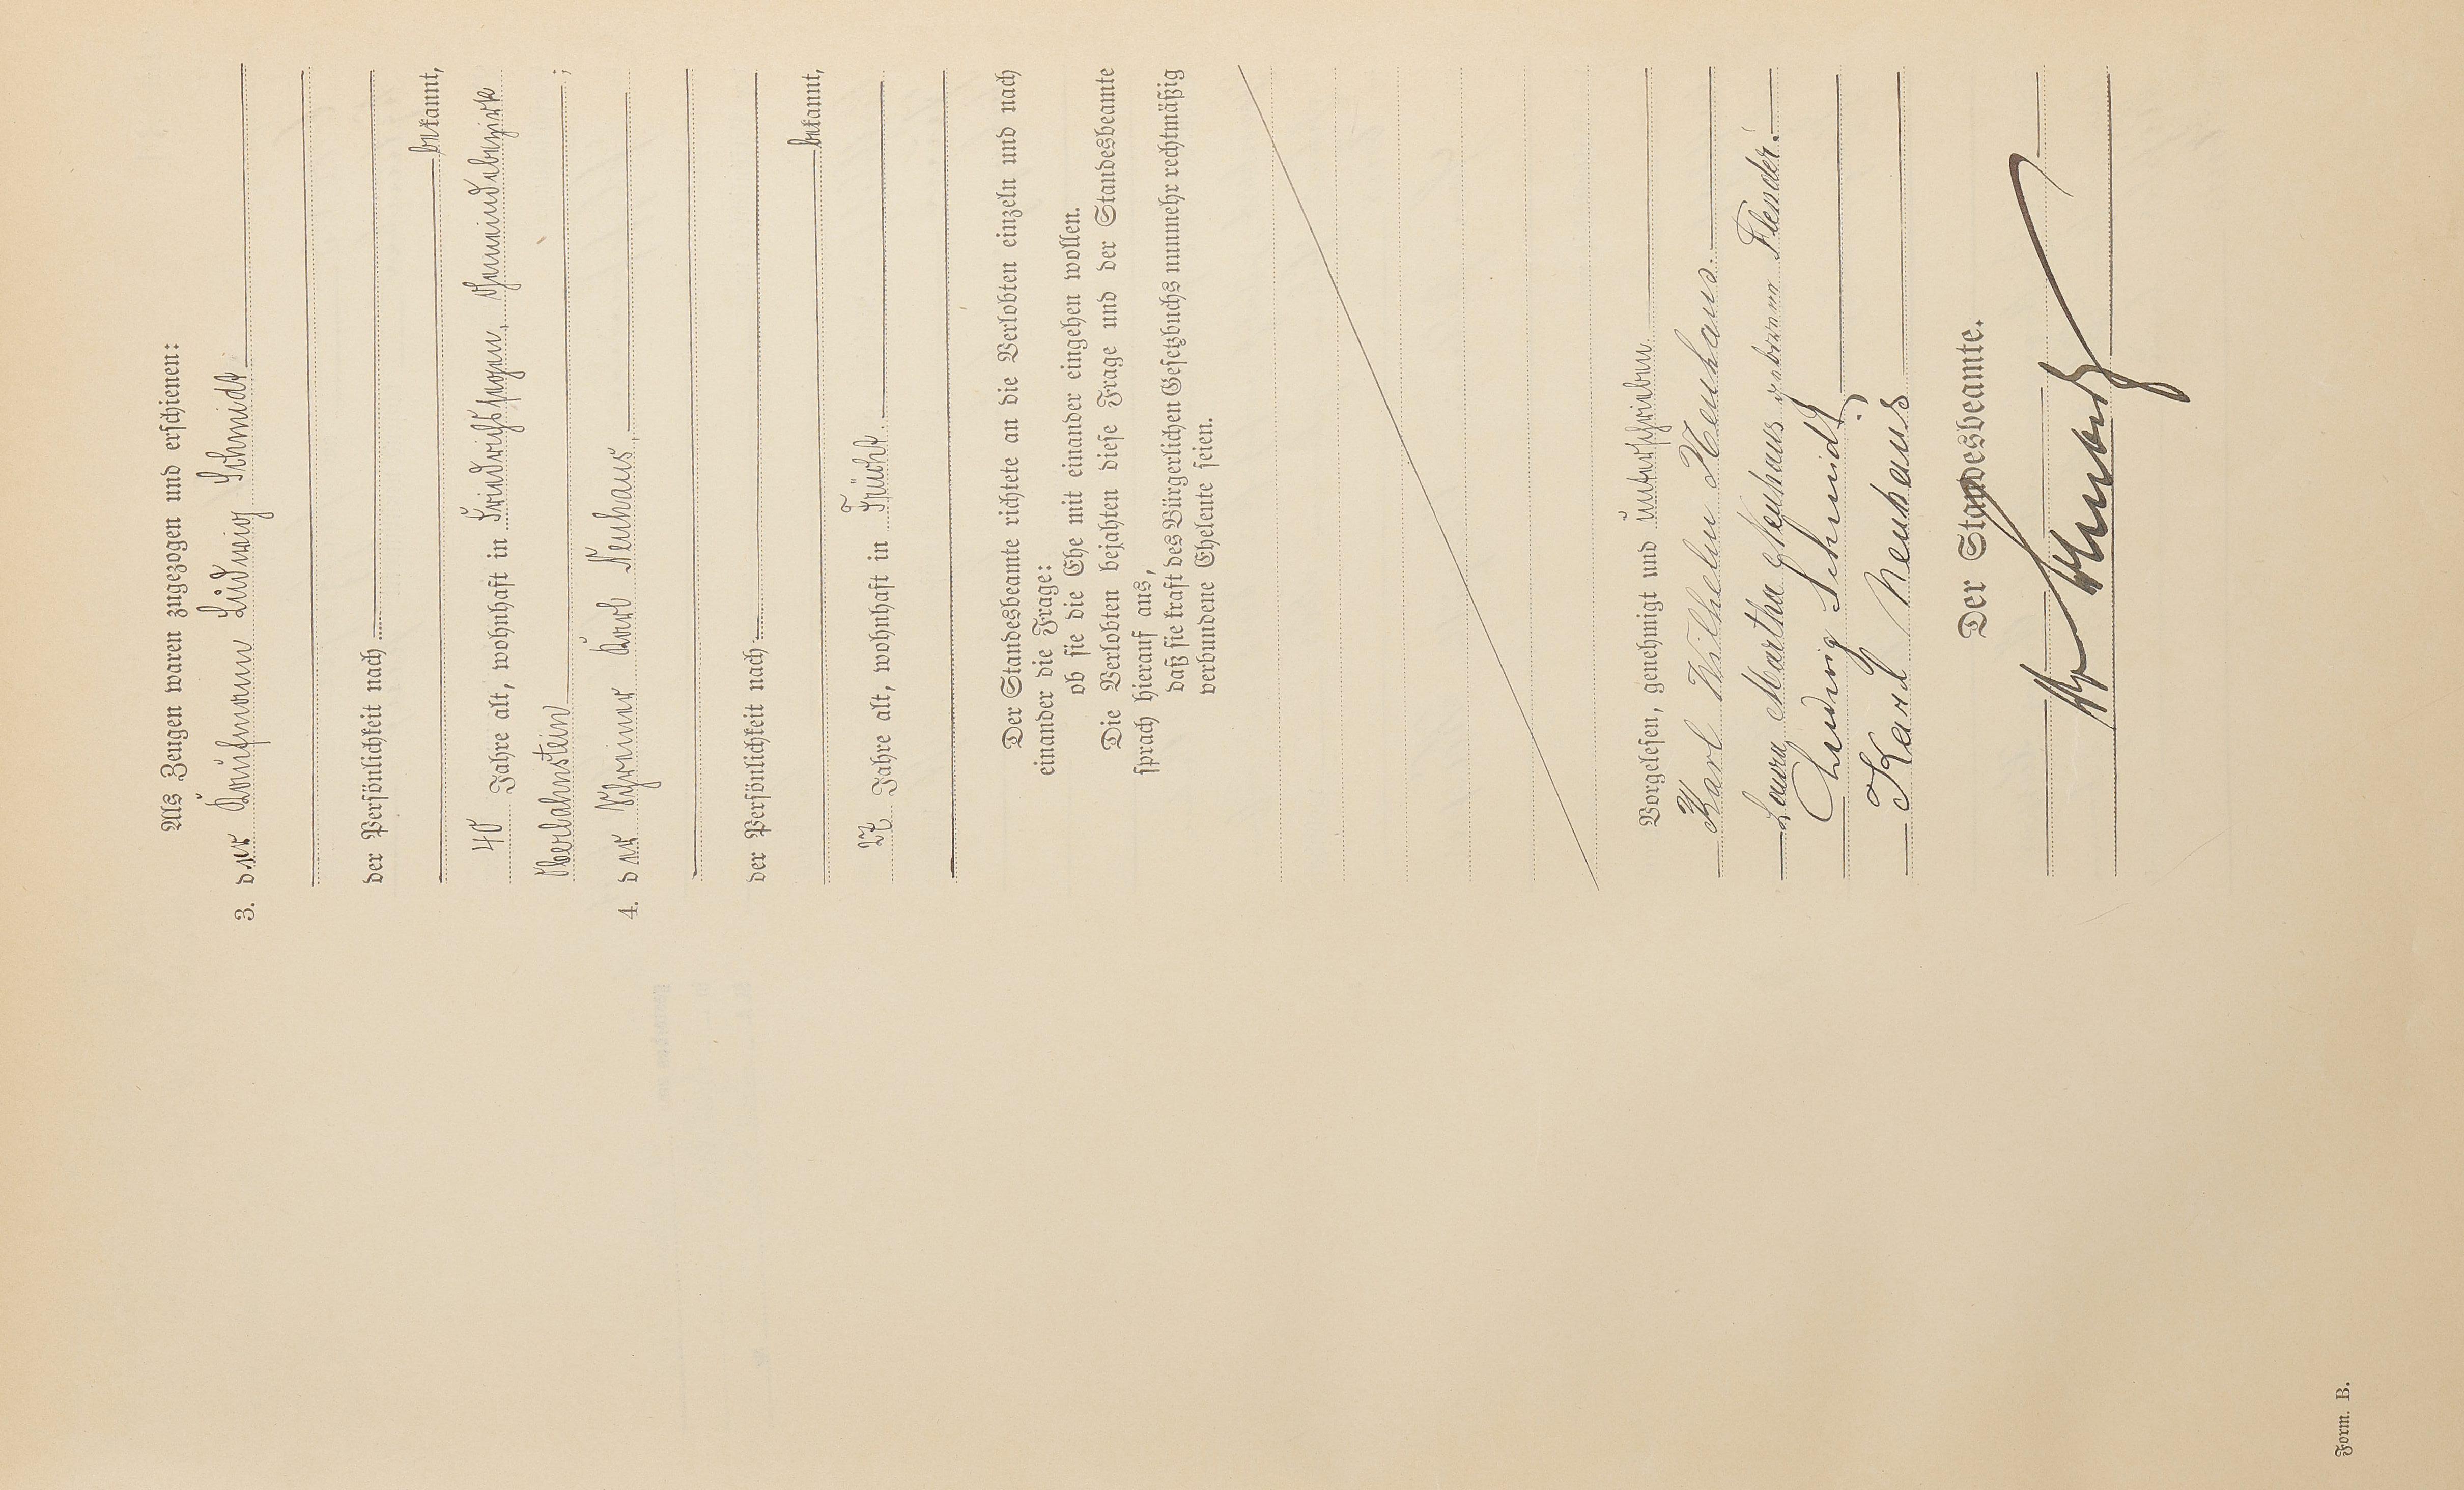 Als Zeugen waren zugezogen und erschienen:
3. der Kaufmann Ludwig Schmidt
der Persönlichkeit nach
bekannt,
40 Jahre alt, wohnhaft in Friedrichssegen, Gemeindebezirk
Oberlahnstein ;
4. der Schreiner Karl Neuhaus,
der Persönlichkeit nach
bekannt,
27 Jahre alt, wohnhaft in Frücht.
Der Standesbeamte richtete an die Verlobten einzeln und nach
einander die Frage:
ob sie die Ehe mit einander eingehen wollen.
Die Verlobten bejahten diese Frage und der Standesbeamte
sprach hierauf aus,
daß sie kraft des Bürgerlichen Gesetzbuchs nunmehr rechtmäßig
verbundene Eheleute seien.
Vorgelesen, genehmigt und unterschrieben.
Karl Wilhelm Neuhaus.
Laura Martha Neuhaus geborene Flender.
Ludwig Schmidt
Karl Neuhaus
Der Standesbeamte.
Form. B.